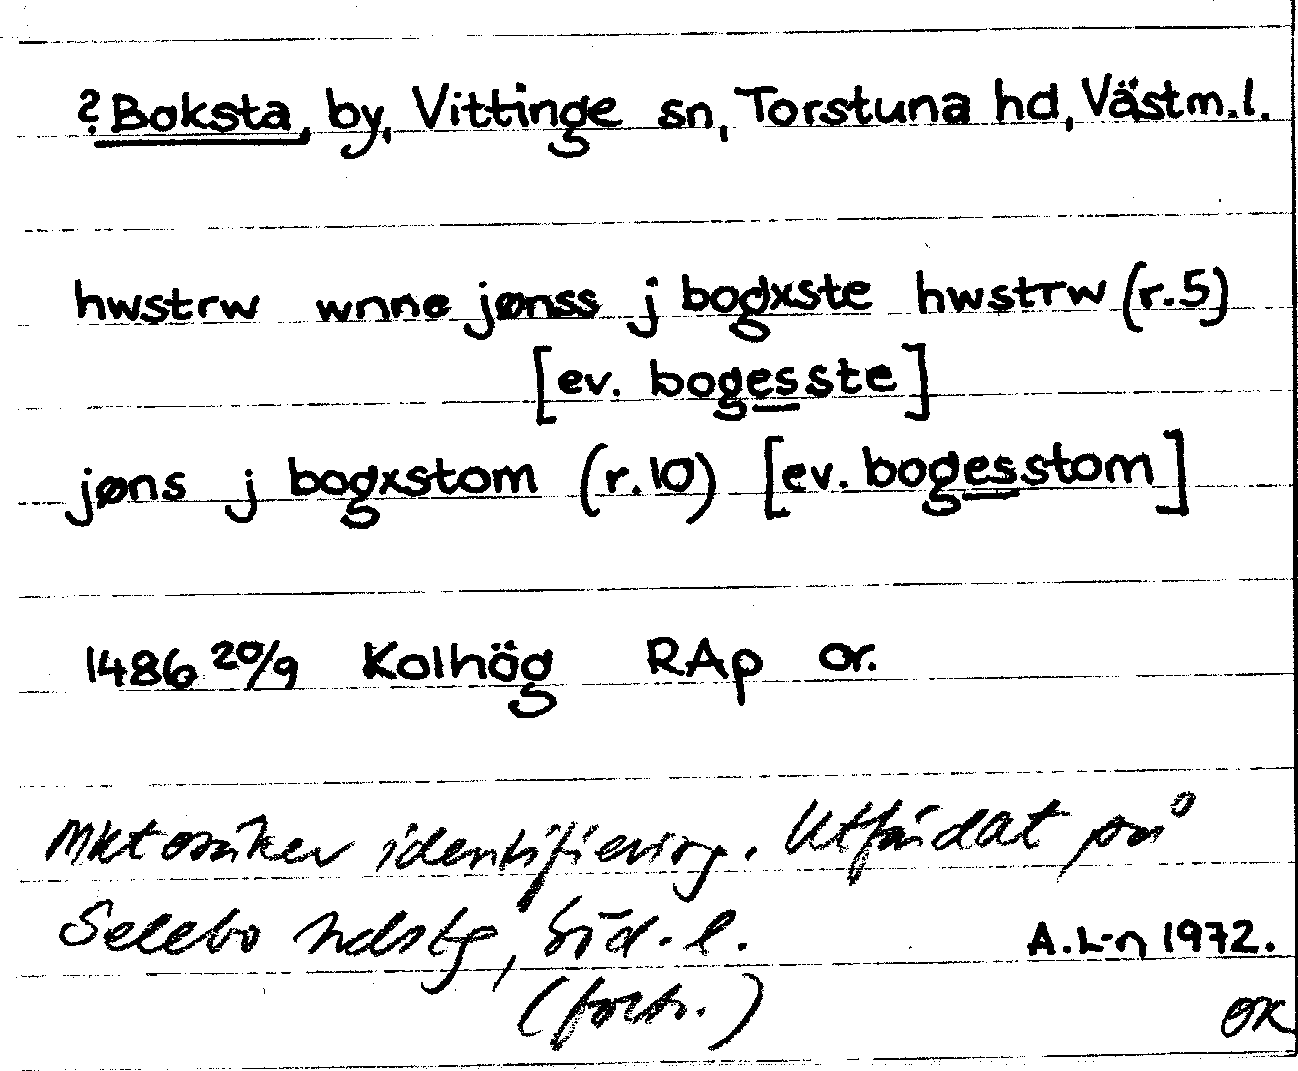 ? Boksta, by, Vittinge sn, Torstuna hd, Västm.l.
hwstrw wnne jønss j bogxste hwstrw (r.5)
[ev. bogesste]
jøns j bogxstom (r.10) [ev. bogesstom]
1486 20/9 Kolhög RAp or.
Mkt osäker identifiering. Utfärdat på
Selebo hdstg, Söd.l.
A.L-n 1972.
(forts.)